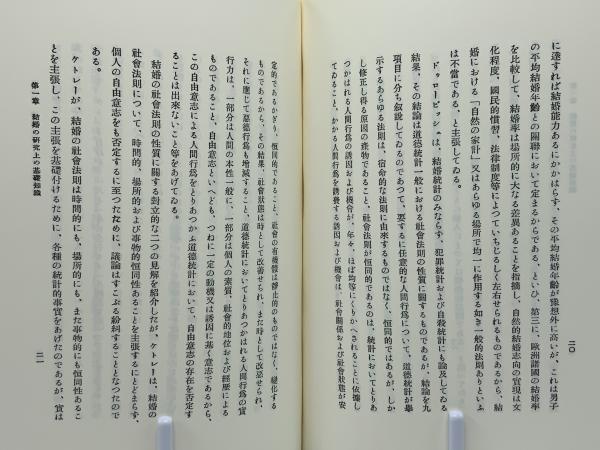 二〇
に達すれば結婚能力あるにかかはらず、その平均結婚年齢が豫想外に高いが、これは男子
の平均結婚年齢との關聯において定まるからである、といひ、第三に、歐洲諸國の結婚率
を比較して、結婚率は場所的に大なる差異あることを指摘し、自然的結婚志向の實現は文
化程度、國民的慣習、法律制度等によつていちじるしく左右せられるものであるから、結
婚における「自然の家計」又はあらゆる場所で均一に作用する如き一般的法則ありといふ
は不當である、と主張してゐる。
ドゥロービッシュは、結婚統計のみならず、犯罪統計および自殺統計にも論及してゐる
結果、その結論は道德統計一般における社會法則の性質に關するものであるが、結論を九
項目に分ち敍說してゐるのであつて、要するに任意的な人間行爲について、道德統計が擧
示するあらゆる法則は、宿命的な法則に由來するものではなく、恒同的ではあるが、しか
し修正し得る原因の產物であること、社會法則が恒同的であるのは、統計においてとりあ
つかはれる人間行爲の誘因および機會が、年々、ほぼ均等にくりかへされることに依據し
てゐること、かかる人間行爲を誘發する誘因および機會は、社會關係および社會狀態が安
定的であるかぎり、恒同的であること、社會の有機體は靜止的のものではなく、變化する
ものであるから、その結果、社會狀態は時として改善せられ、また時として改惡せられ、
それに應じて惡德行爲も增減すること、道德統計においてとりあつかはれる人間行爲の實
行力は、一部分は人間の本性一般に、一部分は個人の素質、社會的地位および經歷による
ものであること、自由意志といへども、つねに一定の動機又は誘因に基く意志であるから、
この自由意志による人間行爲をとりあつかふ道德統計において、自由意志の存在を否定す
ることは出來ないこと等をあげてゐる。
結婚の社會法則の性質に關する對立的な二つの見解を紹介したが、ケトレーは、結婚の
社會法則について、時間的、場所的および事物的恒同性あることを主張するにとどまらず、
個人の自由意志をも否定するに至つたために、議論はすこぶる紛糾することとなつたので
ある。
ケトレーが、結婚の社會法則は時間的にも、場所的にも、また事物的にも恒同性あるこ
とを主張し、この主張を基礎付けるために、各種の統計的事實をあげたのであるが、實は
第一章 結婚の硏究上の基礎知識
二一